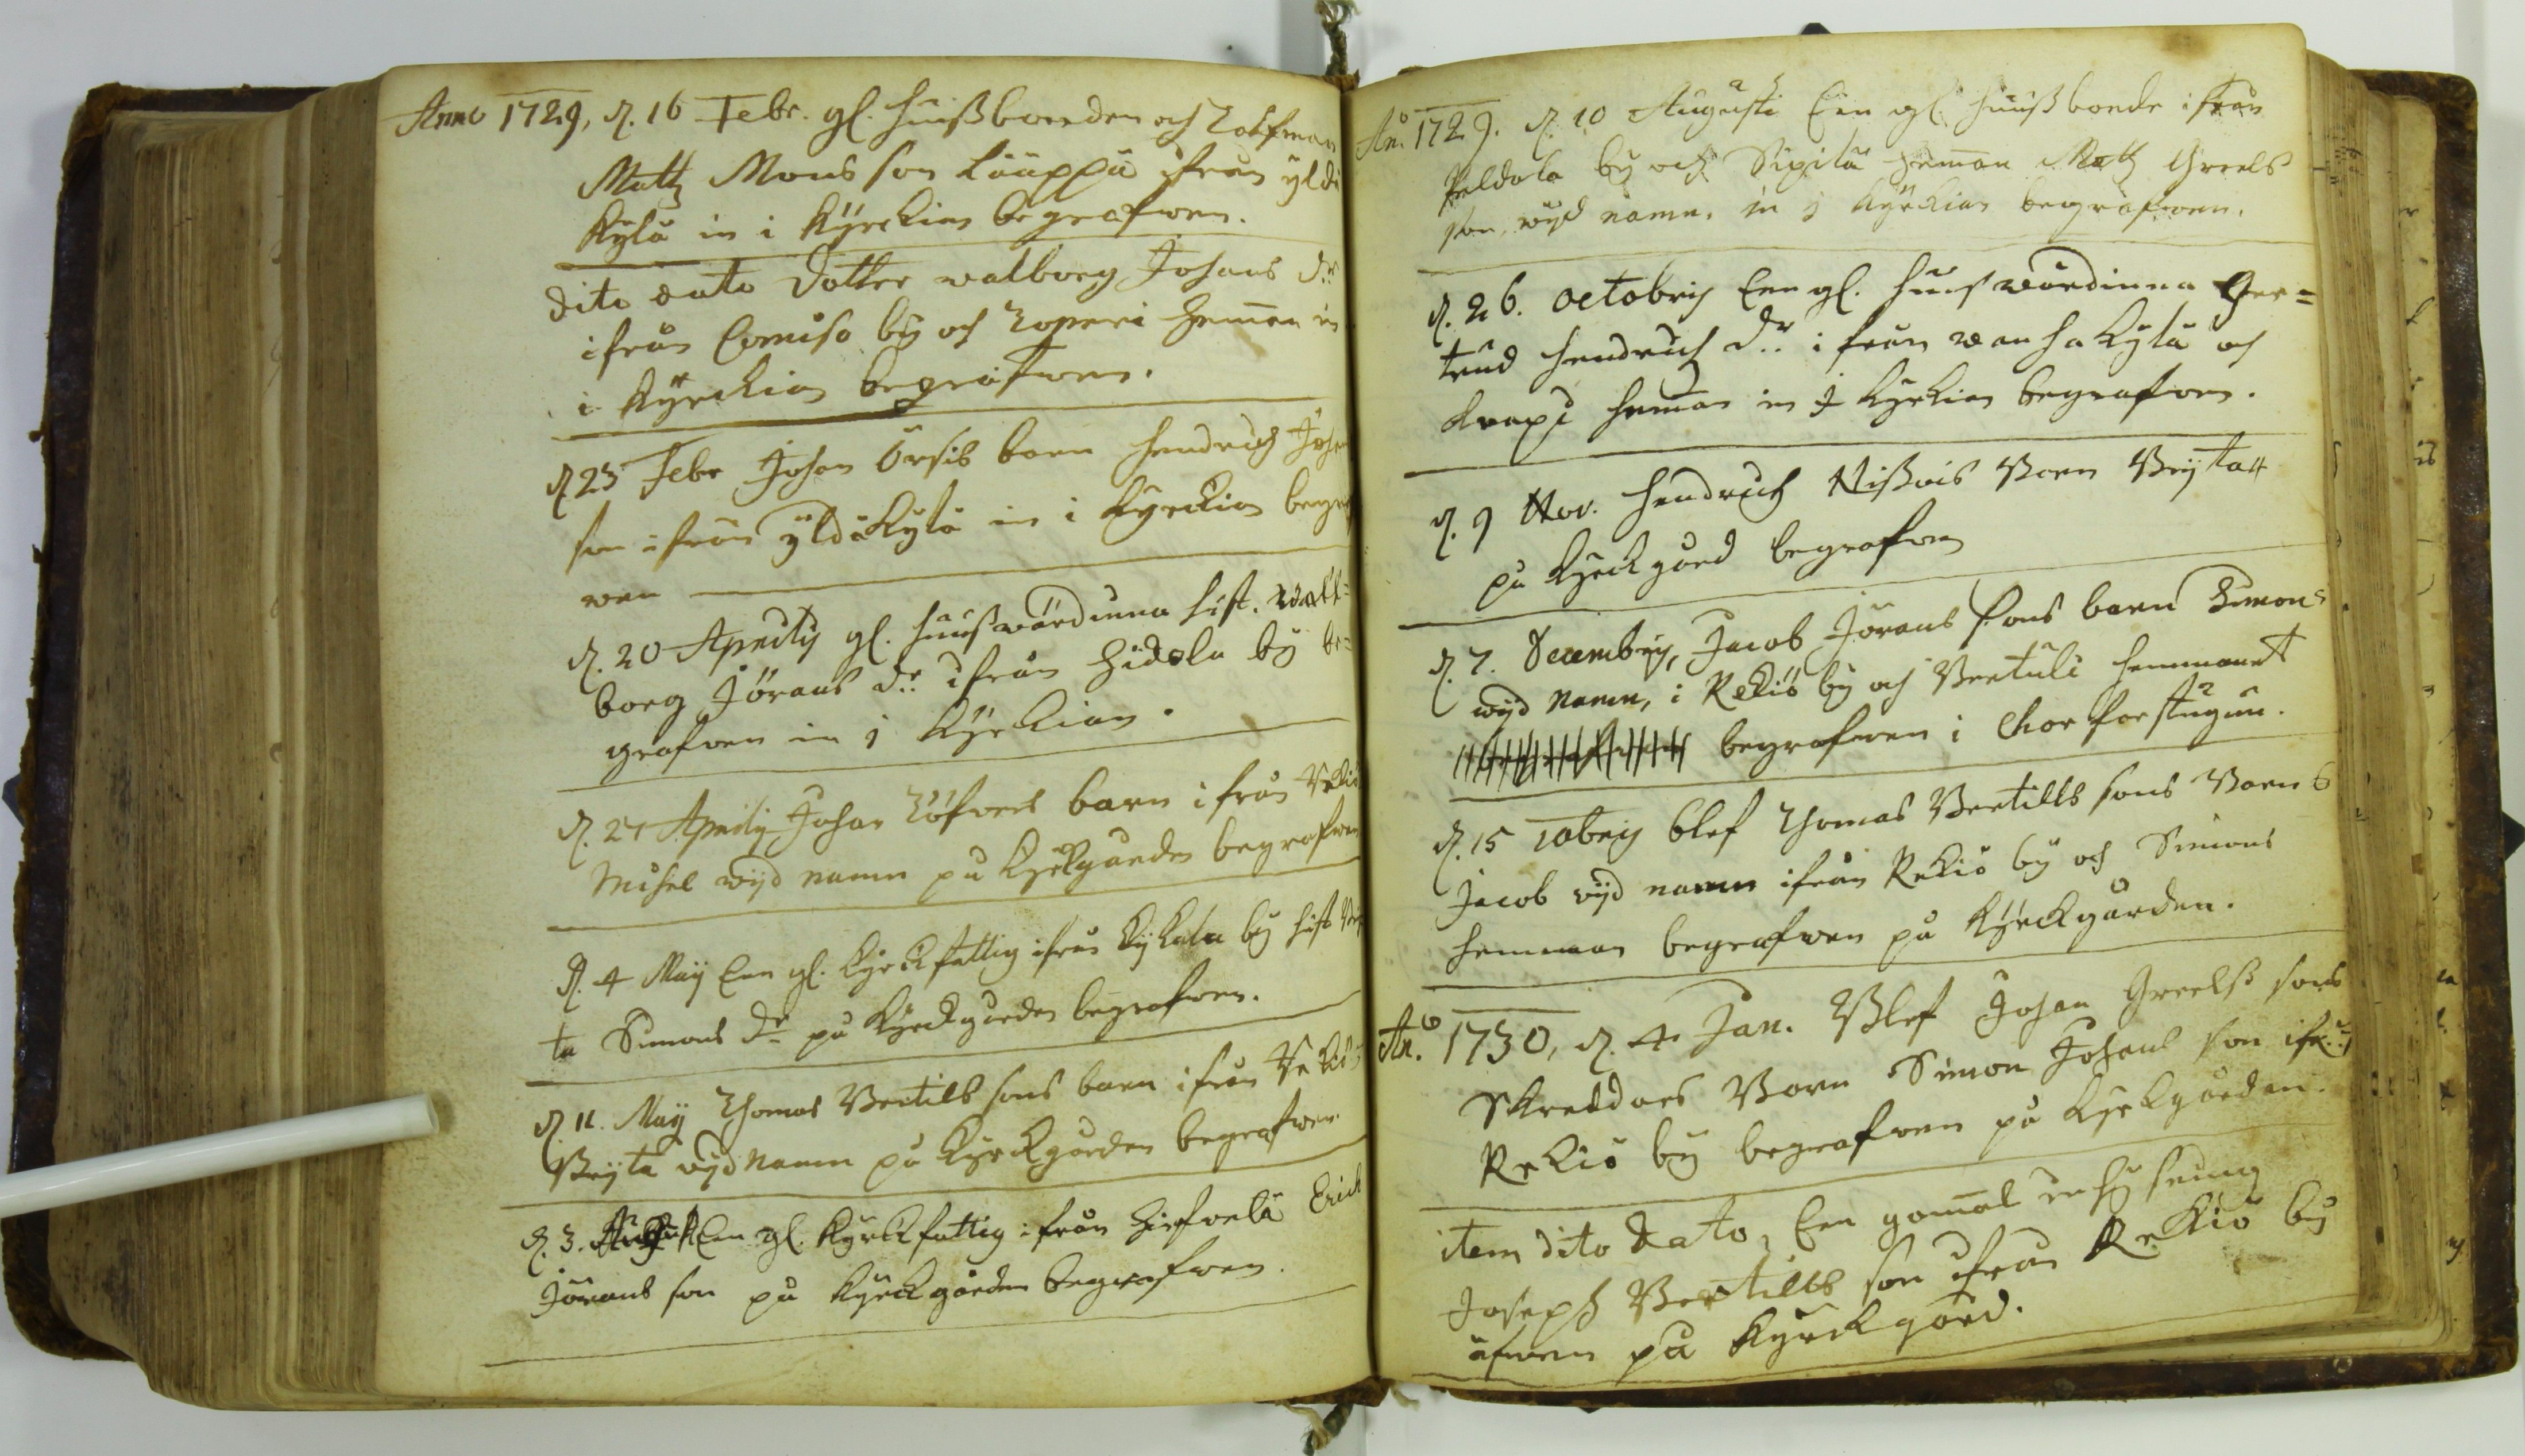 Anno 1729, d. 16 Febr. gl. huußbonden och Tolfman
Matz Mons son Lauppa ifrån yldä
kylä in i kyrckian begrafwen.
dito dato dotter walborg Johans dr
ifrån Comiso by och Toperi heman in
i kyrckian begrafwen.
d. 23 Febr Johan Örsis barn hendrich Johan
son ifrån yldäkylä in i kyrckian begraf
wen
d. 20 Aprilis gl. huußwärdinna hust. wall=
borg Jörans dr ifrån hidola by be=
grafwen in i kyrckian.
d. 27 Aprilis Johan Löfwes barn ifrån
Mihel wijd namn på kyrckgården begrafwen
d. 4 Maij Een gl. kyrckfattig ifrån kykala by hust
ta Simons dr på kyrckgården begrafwen.
d. 11. Maij Thomas Bertils sons barn ifrån
Brijta wijd namn på kyrckgården begrafwen
d. 3. Een gl. kyrckfattig ifrån hirfwelä Erich
Jörans son på kyrckgården begrafwen.
Ano 1729. d. 10 Augusti Een gl. huußbonde ifrån
Peldola by och Sipilä heman Matz Greels
son, wijd namn, in i kyrckian begrafwen.
d. 26. octobris Een gl. huuswärdinna Ger=
trud hendrichz dr ifrån wanhakylä och
krapi heman in i kyrckian begrafwen.
d. 9 Nov. hendrich Nißwis Barn Brijta
på kyrckgård begrafwen
d. 7. Decembris, Jacob Jörans sons barn Simon
wijd namn, i Rekiö by och Bertuli hemmanet
begrafwen i Chorforstugun.
d. 15 10bris blef Thomas Bertills sons Barn
Jacob wijd namn ifrån Rekiö by och Simons
hemman begrafwen på kyrckgården.
An.o 1730, d. 4 Jan. Blef Johan Greelß sons
Skreddars Barn Simon Johans son ifr:n
Rekiö by begrafwen på kyrckgården.
item dito dato, Een gamal inhysning
Joseph Bertills son ifrån Rekiö by
äfwen på kyrckgård.